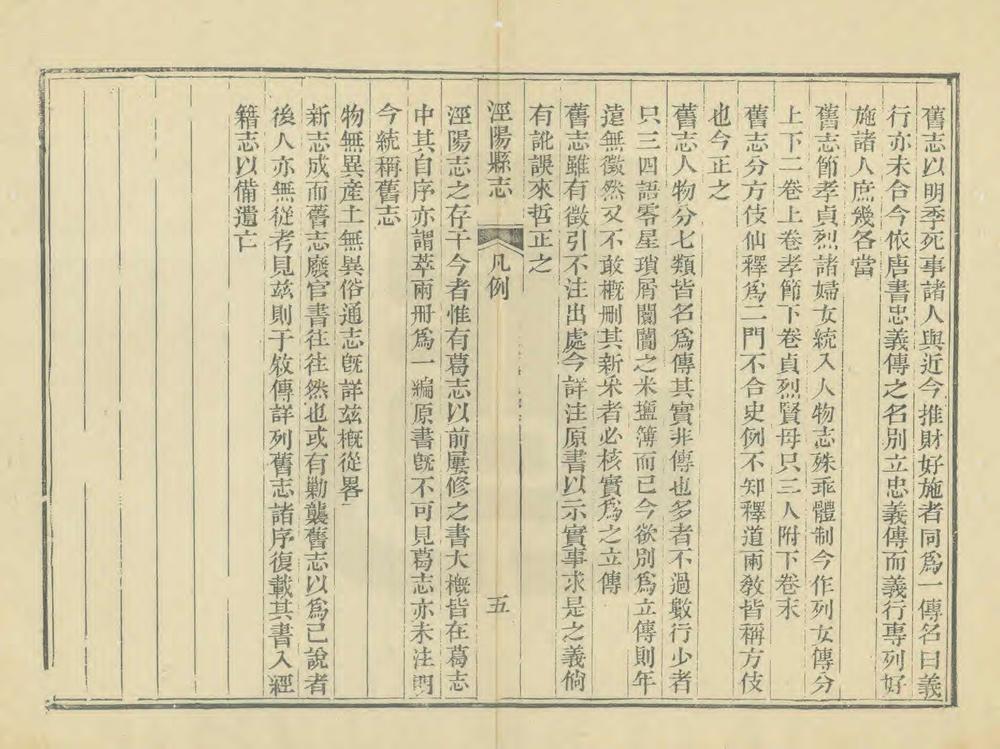 舊志以明季死事諸人與近今推財好施者同爲一傳名曰義
行亦未合今依唐書忠義傳之名別立忠義傳而義行專列好
施諸人庶幾各當
舊志節孝貞烈諸婦女統入人物志殊乖體制今作列女傳分
上下二卷上卷孝節下卷貞烈賢母只三人附下卷末
舊志分方伎仙釋爲二門不合史例不知釋道兩敎皆稱方伎
也今正之
舊志人物分七類皆名爲傳其實非傳也多者不過數行少者
只三四語零星瑣屑闤闠之米鹽簿而已今欲別爲立傳則年
遠無徵然又不敢概刪其新采者必核實爲之立傳
舊志雖有徵引不注出處今詳注原書以示實事求是之義倘
有訛誤來哲正之
涇陽縣志 凡例 五
涇陽志之存于今者惟有葛志以前屢修之書大槪皆在葛志
中其自序亦謂萃兩册爲一編原書旣不可見葛志亦未注明
今統稱舊志
物無異產土無異俗通志旣詳玆槪從畧
新志成而舊志廢官書往往然也或有勦襲舊志以爲己說者
後人亦無從考見玆則于敘傳詳列舊志諸序復載其書入經
籍志以備遺亡